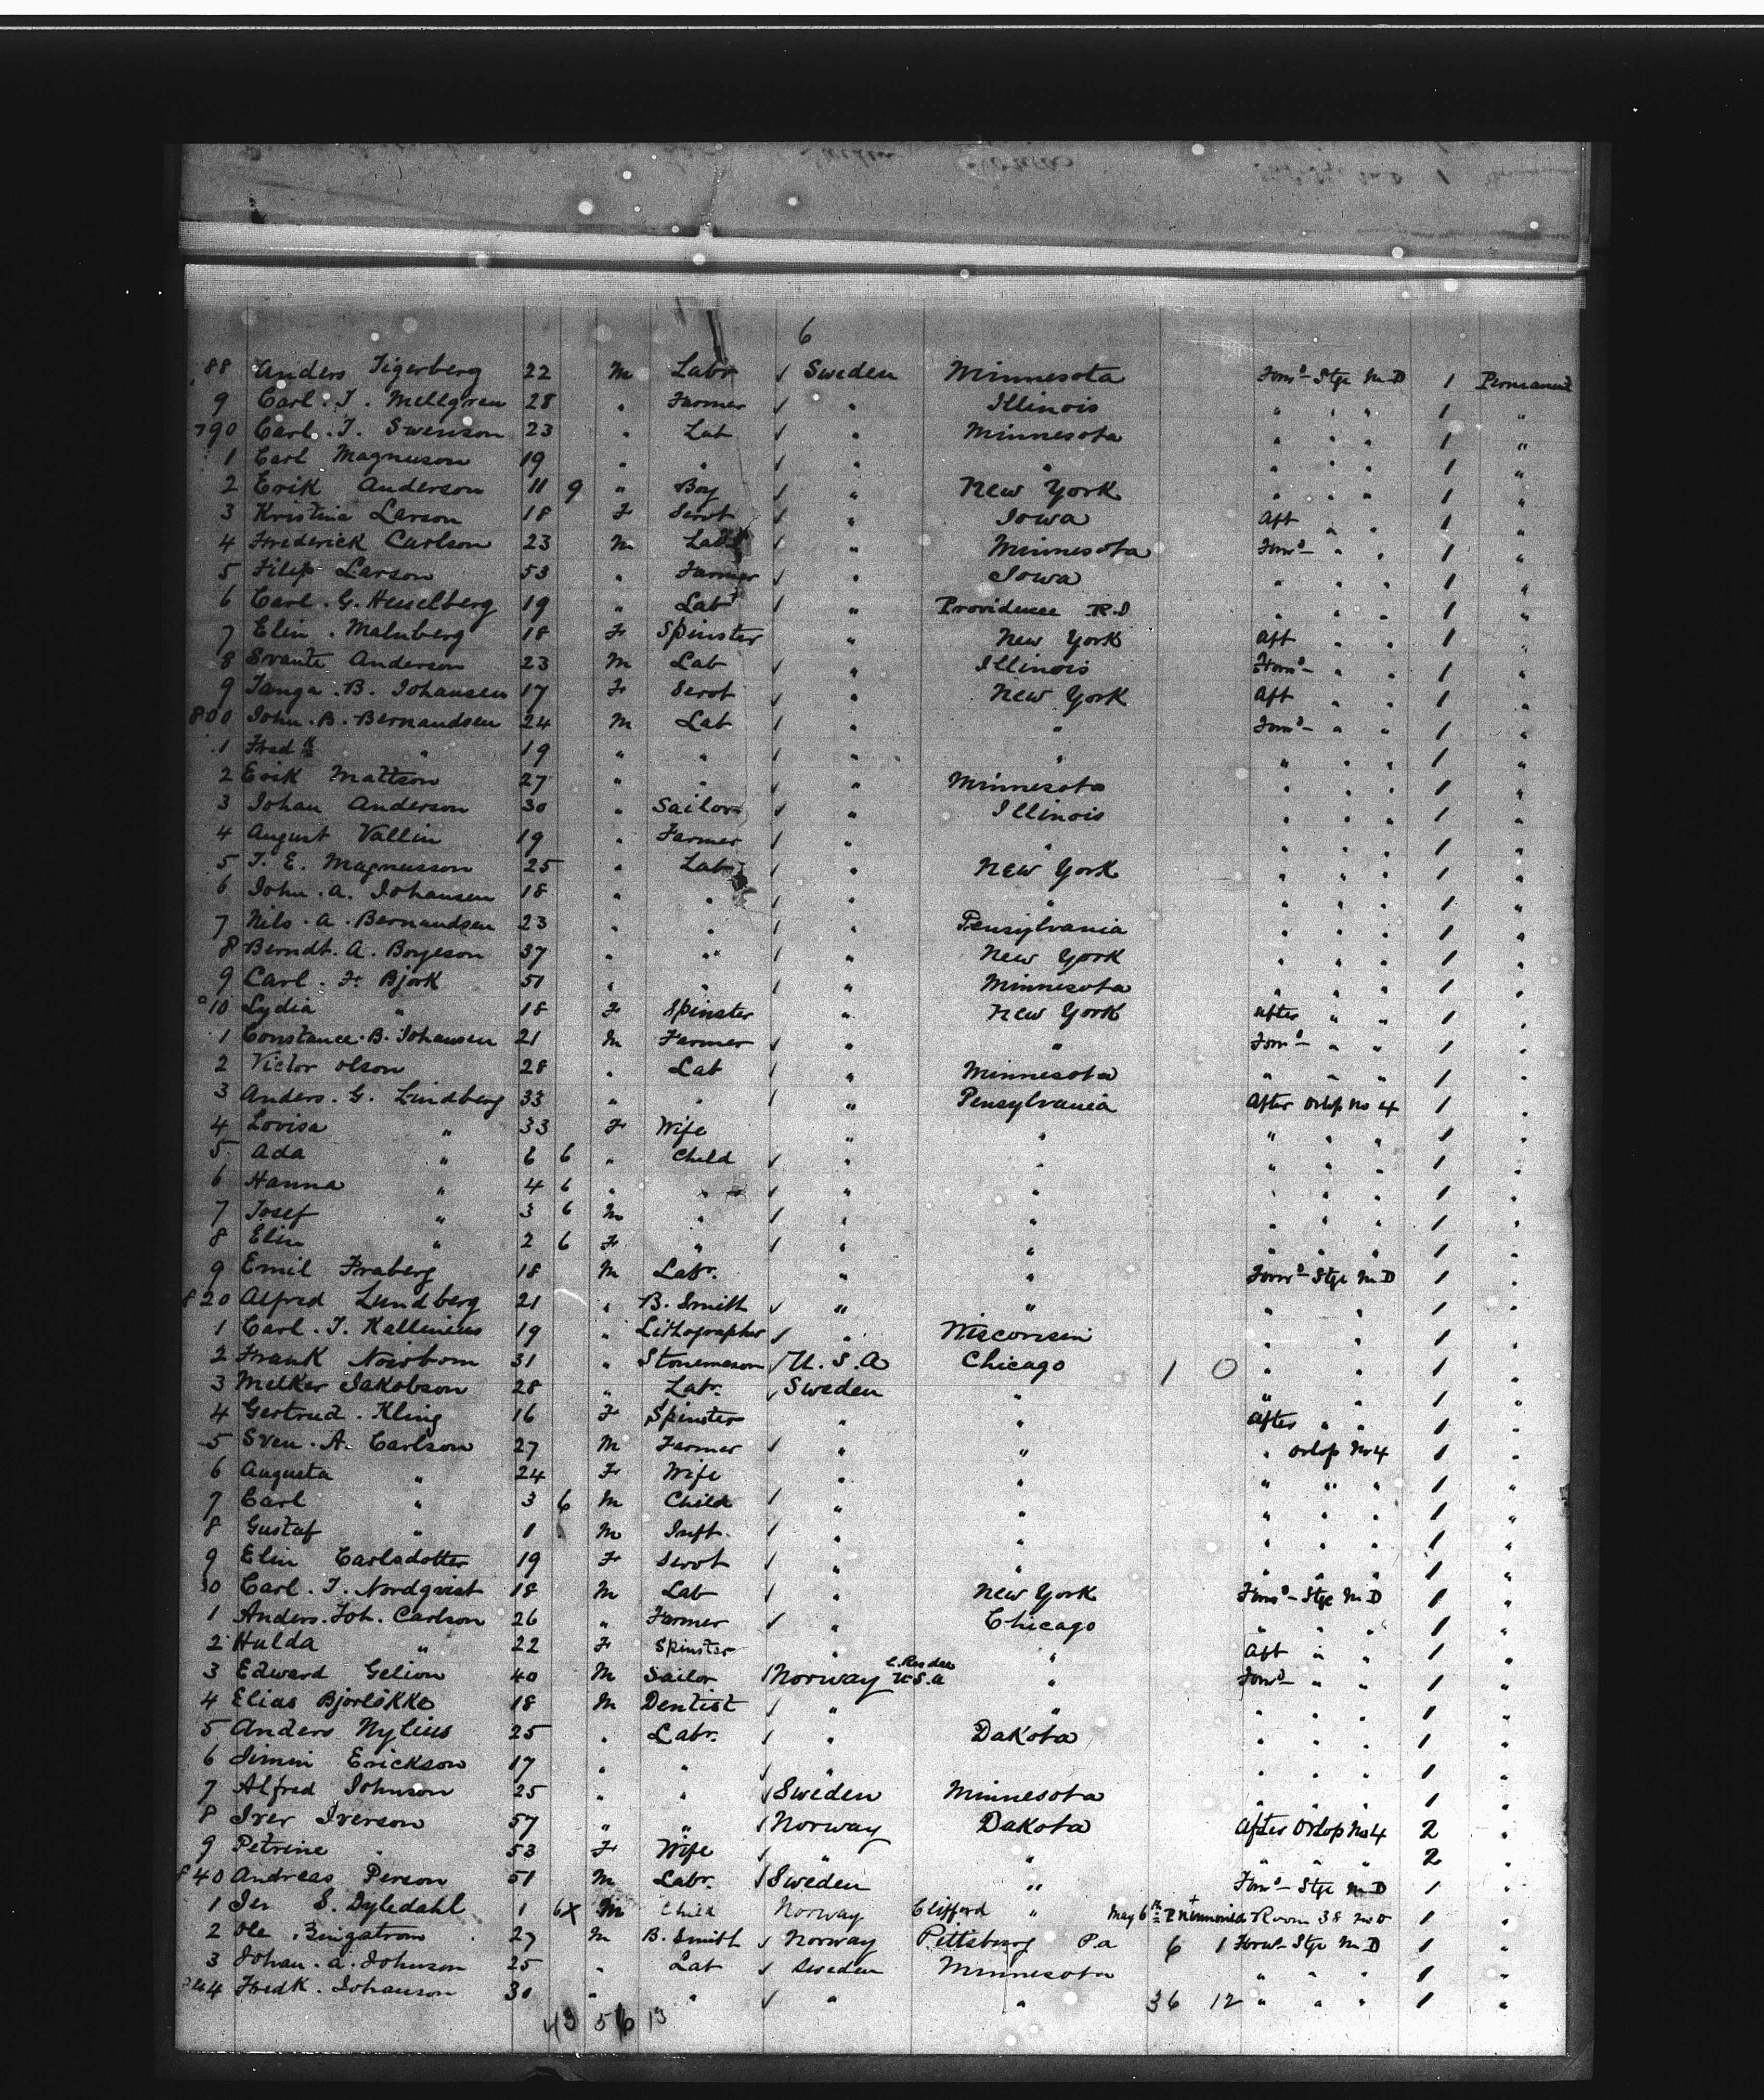 6
88 Anders Tigerberg 22 M Labr ✓ Sweden Minnesota Forwd Stge M D 1 Permanent
9 Carl . J . Mellgren 28 " Farmer ✓ " Illinois " " " 1 "
790 Carl . J . Swenson 23 " Lab ✓ " Minnesota " " " 1 "
1 Carl Magnuson 19 " " ✓ " " " " " 1 "
2 Erik Anderson 11 9 " Boy ✓ " New York " " " 1 "
3 Kristina Larson 18 F Servt ✓ " Iowa Aft " " 1 "
4 Frederick Carlson 23 M Lab ✓ " Minnesota Forwd " " 1 "
5 Filip Larson 53 " Farmer ✓ " Iowa " " " 1 "
6 Carl . G. Hesselberg 19 " Labr ✓ " Providence R.I " " " 1 "
7 Elin . Malmberg 18 F Spinster " New York Aft " " 1 "
8 Svante Anderson 23 M Lab ✓ " Illinois Forwd " " 1 "
9 Tanga . B. Johansen 17 F Servt ✓ " New York Aft " " 1 "
800 John . B. Bernaudsen 24 M Lab ✓ " " Forwd " " 1 "
1 Fredk " 19 " " ✓ " " " " " 1 "
2 Erik Mattson 27 " " ✓ " Minnesota " " " 1 "
3 Johan Anderson 30 " Sailor ✓ " Illinois " " " 1 "
4 August Vallin 19 " Farmer ✓ " " " " " 1 "
5 J. E. Magnusson 25 " Lab ✓ " New York " " " 1 "
6 John . A. Johansen 18 " " ✓ " " " " " 1 "
7 Nils . A . Bernaudsen 23 " " ✓ " Pensylvania " " " 1 "
8 Berndt . A . Borjeson 37 " " ✓ " New York " " " 1 "
9 Carl . F. Bjork 51 " " ✓ " Minnesota " " " 1 "
10 Lydia " 18 F Spinster " New York After " " 1 "
1 Constance . B. Johansen 21 M Farmer ✓ " " Forwd " " 1 "
2 Victor Olson 28 " Lab ✓ " Minnesota " " " 1 "
3 Anders . G. Lindberg 33 " " ✓ " Pensylvania After Orlop No 4 1 "
4 Lovisa " 33 F Wife " " " " " 1 "
5 Ada " 6 6 " Child ✓ " " " " " 1 "
6 Hanna " 4 6 " " ✓ " " " " " 1 "
7 Josef " 3 6 M " ✓ " " " " " 1 "
8 Elin " 2 6 F " ✓ " " " " " 1 "
9 Emil Fraberg 18 M Labr. " " Forwd Stge M D 1 "
820 Alfred Lundberg 21 " B. Smith ✓ " " " " 1 "
1 Carl . J. Kallenius 19 " Lithographer ✓ " Wisconsin " " 1 "
2 Frank 31 " Stonemason ✓ U.S.A Chicago 1 0 " " 1 "
3 Melker Jakobson 28 " Labr. ✓ Sweden " " " 1 "
4 Gertrud . Kling 16 F Spinster " " After " " 1 "
5 Sven . A. Carlson 27 M Farmer ✓ " " " Orlop No 4 1 "
6 Augusta " 24 F Wife " " " " " 1 "
7 Carl " 3 6 M Child ✓ " " " " " 1 "
8 Gustaf " 1 M Inft. ✓ " " " " " 1 "
9 Elin Carlsdotter 19 F Servt ✓ " " " " " 1 "
30 Carl . J. Nordqvist 18 M Lab ✓ " New York Forwd Stge M D 1 "
1 Anders. Joh. Carlson 26 " Farmer ✓ " Chicago " " " 1 "
2 Hulda " 22 F Spinster " " Aft " " 1 "
3 Edward Gelion 40 M Sailor ✓ Norway U.S.A " Forwd " " 1 "
4 Elias Bjorlökke 18 M Dentist ✓ " " " " " 1 "
5 Anders Nylius 25 " Labr. ✓ " Dakota " " " 1 "
6 Simen Erickson 17 " " ✓ " " " " 1 "
7 Alfred Johnson 25 " " ✓ Sweden Minnesota " " " 1 "
8 Iver Iverson 57 " " ✓ Norway Dakota After Orlop No 4 2 "
9 Petrine " 53 F Wife ✓ " " " " " 2 "
840 Andreas Person 51 M Labr. ✓ Sweden " Forwd Stge M D 1 "
1 Jer S. Dyledahl 1 6X M Child Norway Clifford " May 6th Pneumonia Room 38 1 "
2 Ole Bingstrom 27 M B. Smith ✓ Norway Pittsburg Pa 6 1 Forwd Stge M D 1 "
3 Johan . A. Johnson 25 " Lab ✓ Sweden Minnesota " " " 1 "
844 Fredk. Johanson 30 " " ✓ " " 36 12 " " " 1 "
43 56 13